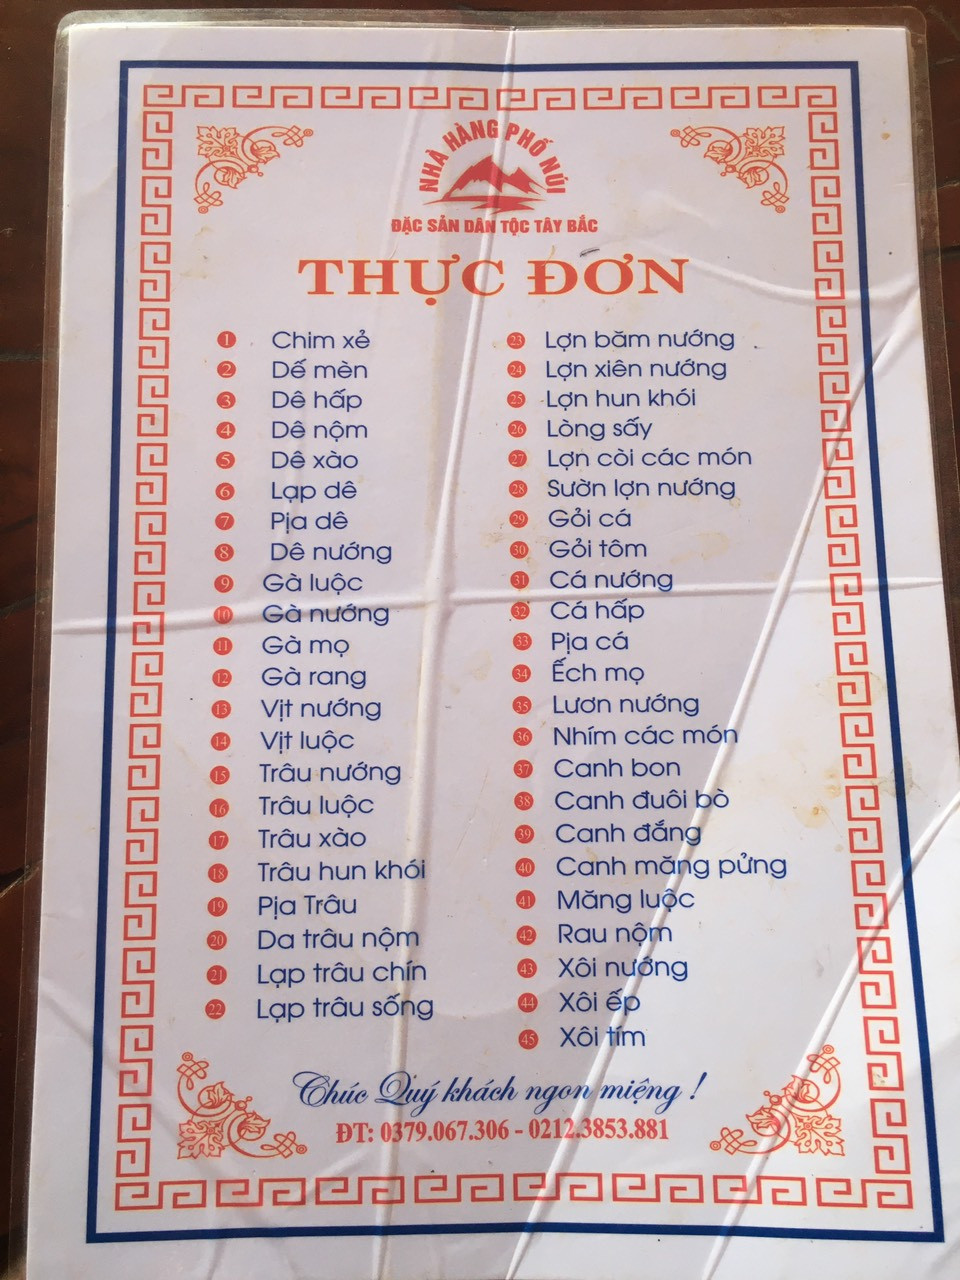 NHÀ HÀNG PHỐ NÚI
ĐẶC SẢN DÂN TỘC TÂY BẮC
THỰC ĐƠN
1 Chim xẻ
2 Dế mèn
3 Dê hấp
4 Dê nộm
5 Dê xào
6 Lạp dê
7 Pịa dê
8 Dê nướng
9 Gà luộc
10 Gà nướng
11 Gà mọ
12 Gà rang
13 Vịt nướng
14 Vịt luộc
15 Trâu nướng
16 Trâu luộc
17 Trâu xào
18 Trâu hun khói
19 Pịa Trâu
20 Da trâu nộm
21 Lạp trâu chín
22 Lạp trâu sống
23 Lợn băm nướng
24 Lợn xiên nướng
25 Lợn hun khói
26 Lòng sấy
27 Lợn còi các món
28 Sườn lợn nướng
29 Gỏi cá
30 Gỏi tôm
31 Cá nướng
32 Cá hấp
33 Pịa cá
34 Ếch mọ
35 Lươn nướng
36 Nhím các món
37 Canh bon
38 Canh đuôi bò
39 Canh đắng
40 Canh măng pửng
41 Măng luộc
42 Rau nộm
43 Xôi nướng
44 Xôi ếp
45 Xôi tím
Chúc Quý khách ngon miệng !
ĐT: 0379.067.306 - 0212.3853.881